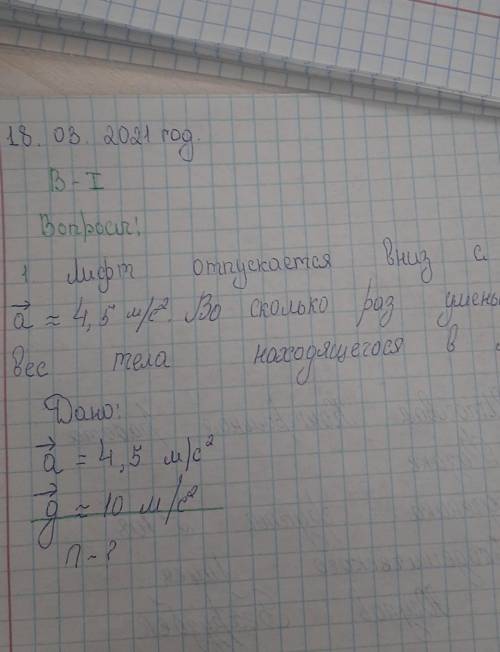 18. 03. 2021 год.
В - I
Вопросы!
1 Лифт отпускается вниз с
a⃗ ≈ 4,5 м/с². Во сколько раз умень
вес тела находящегося в
Дано:
a⃗ = 4,5 м/с²
g⃗ ≈ 10 м/с²
n - ?